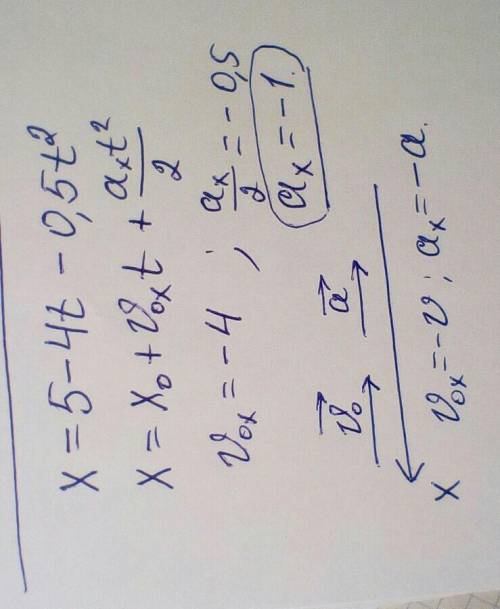 x = 5 - 4t - 0,5t²
x = x₀ + v₀ₓt + aₓt²/2
v₀ₓ = -4 ; aₓ/2 = -0,5
aₓ = -1.
v⃗₀ a⃗
x v₀ₓ = -v ; aₓ = -a.